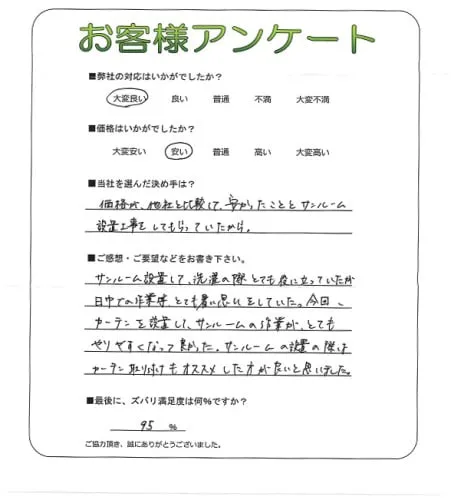 お客様アンケート
■弊社の対応はいかがでしたか？
大変良い 良い 普通 不満 大変不満
■価格はいかがでしたか？
大変安い 安い 普通 高い 大変高い
■当社を選んだ決め手は？
価格が、他社と比較して、安かったこととサンルーム
設置工事をしてもらっていたから。
■ご感想・ご要望などをお書き下さい。
サンルーム設置して、洗濯の際とても役に立っていたが
日中での作業時、とても暑い思いをしていた。今回、
カーテンを設置して、サンルームの作業が、とても
やりやすくなって良かった。サンルームの設置の際は
カーテン取り付けもオススメした方が良いと思いました。
■最後に、ズバリ満足度は何%ですか？
95 %
ご協力頂き、誠にありがとうございました。